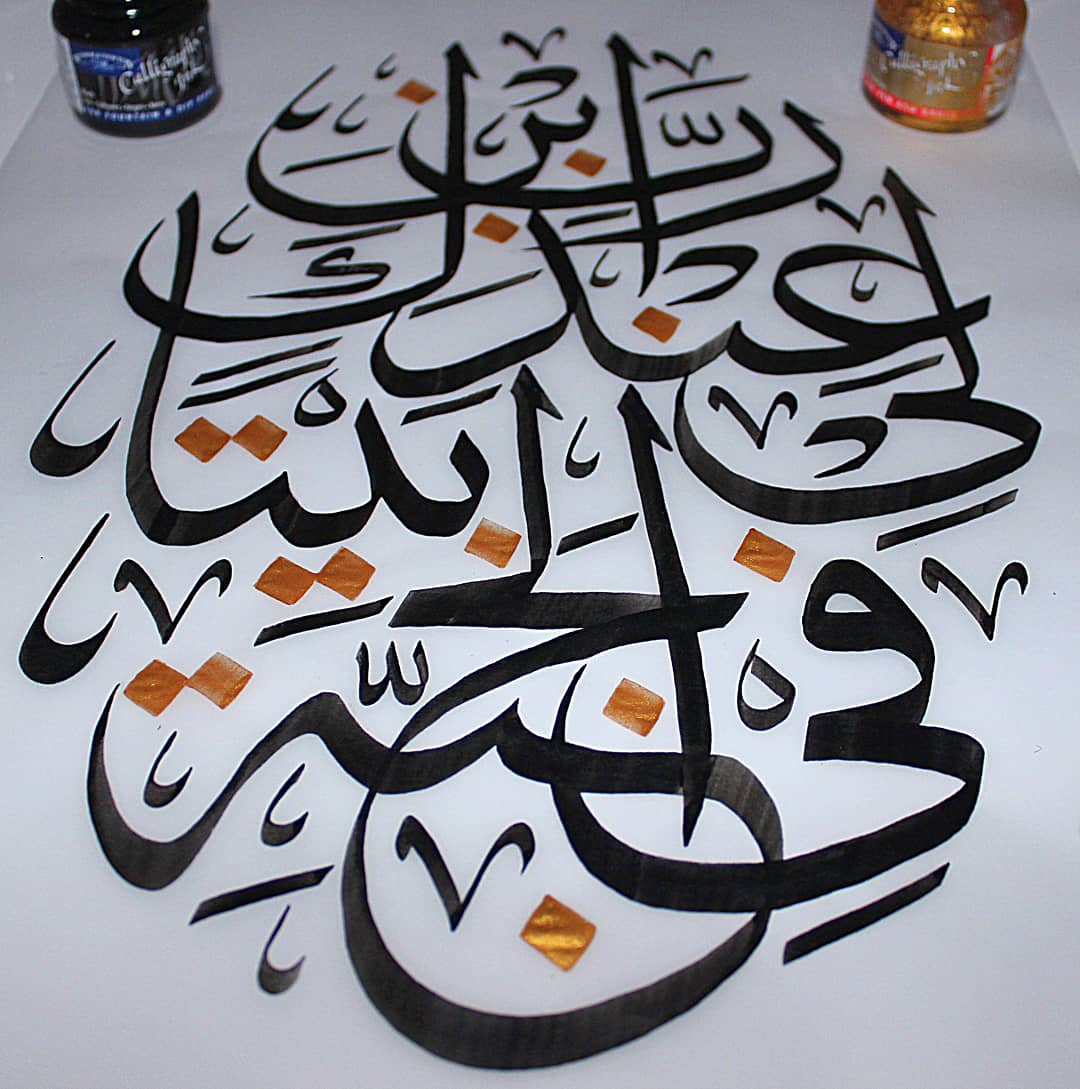 رَبِّ ابْنِ
لِي عِنْدَكَ
بَيْتًا
فِي الْجَنَّةِ
Calligraphy Ink
Calligraphy Ink